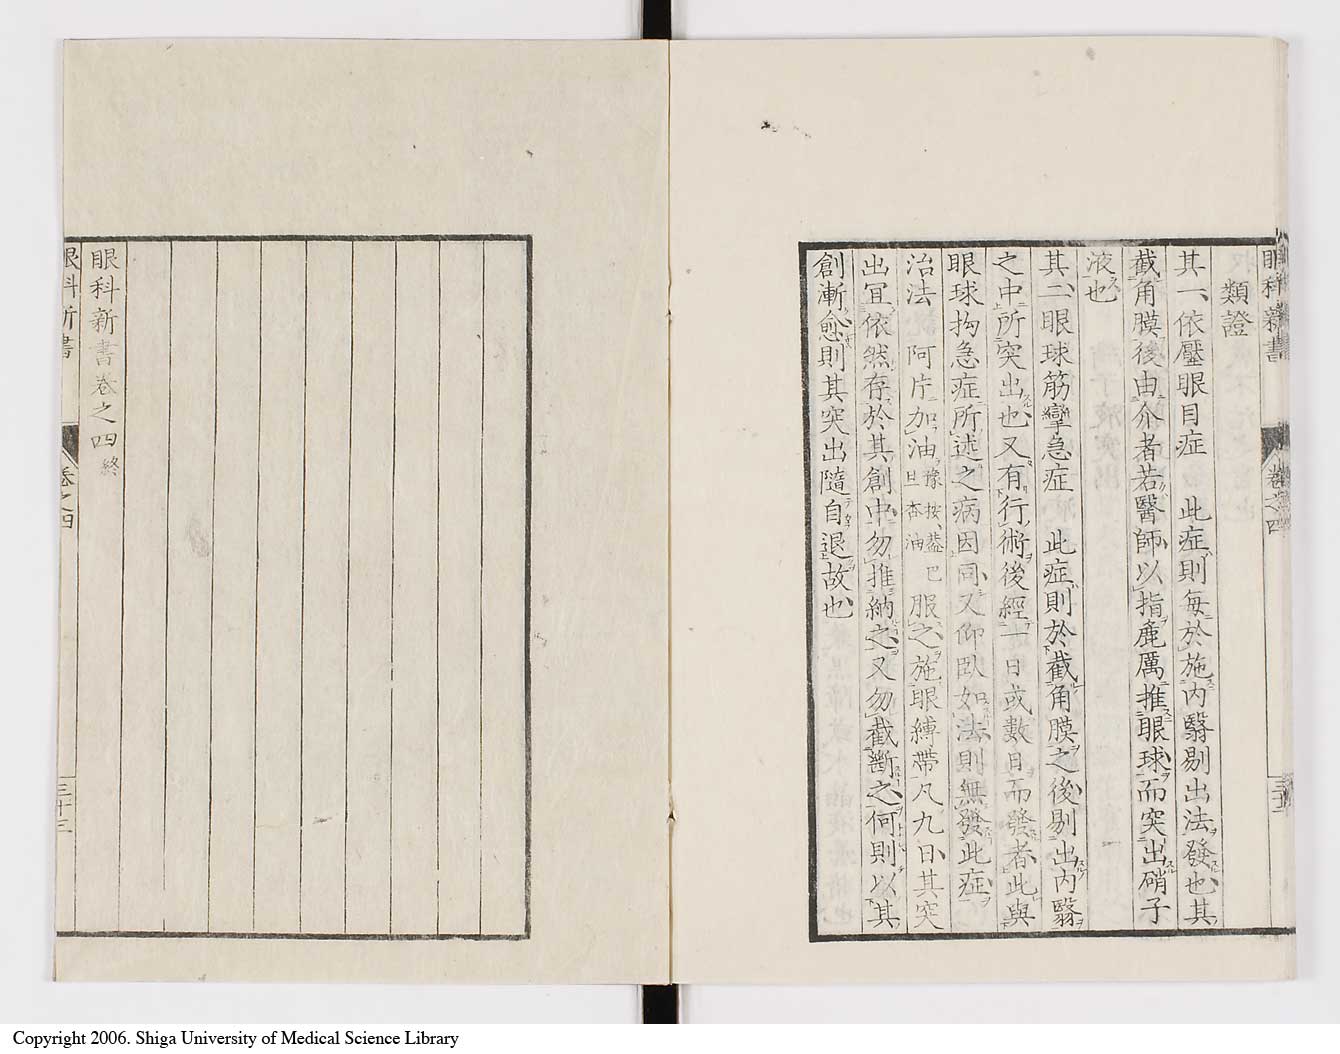 眼科新書
卷之四
類證
其一、依壓眼目症 此症則每於施內翳剔出法發也其
截角膜後由介者若醫師以指麁厲推眼球而突出硝子
液也
其二、眼球筋攣急症 此症則於截角膜之後剔出內翳
之中所突出也又有行術後經一日或數日而發者此與
眼球拘急症所述之病因同又仰臥如法則無發此症
治法 阿片加油 按、蓋巴豫旦杏油 服之施眼縛帶凡九日其突
出冝依然存於其創中勿推納之又勿截斷之何則以其
創漸愈則其突出隨自退故也
眼科新書卷之四終
眼科新書
卷之四
三十三
Copyright 2006. Shiga University of Medical Science Library